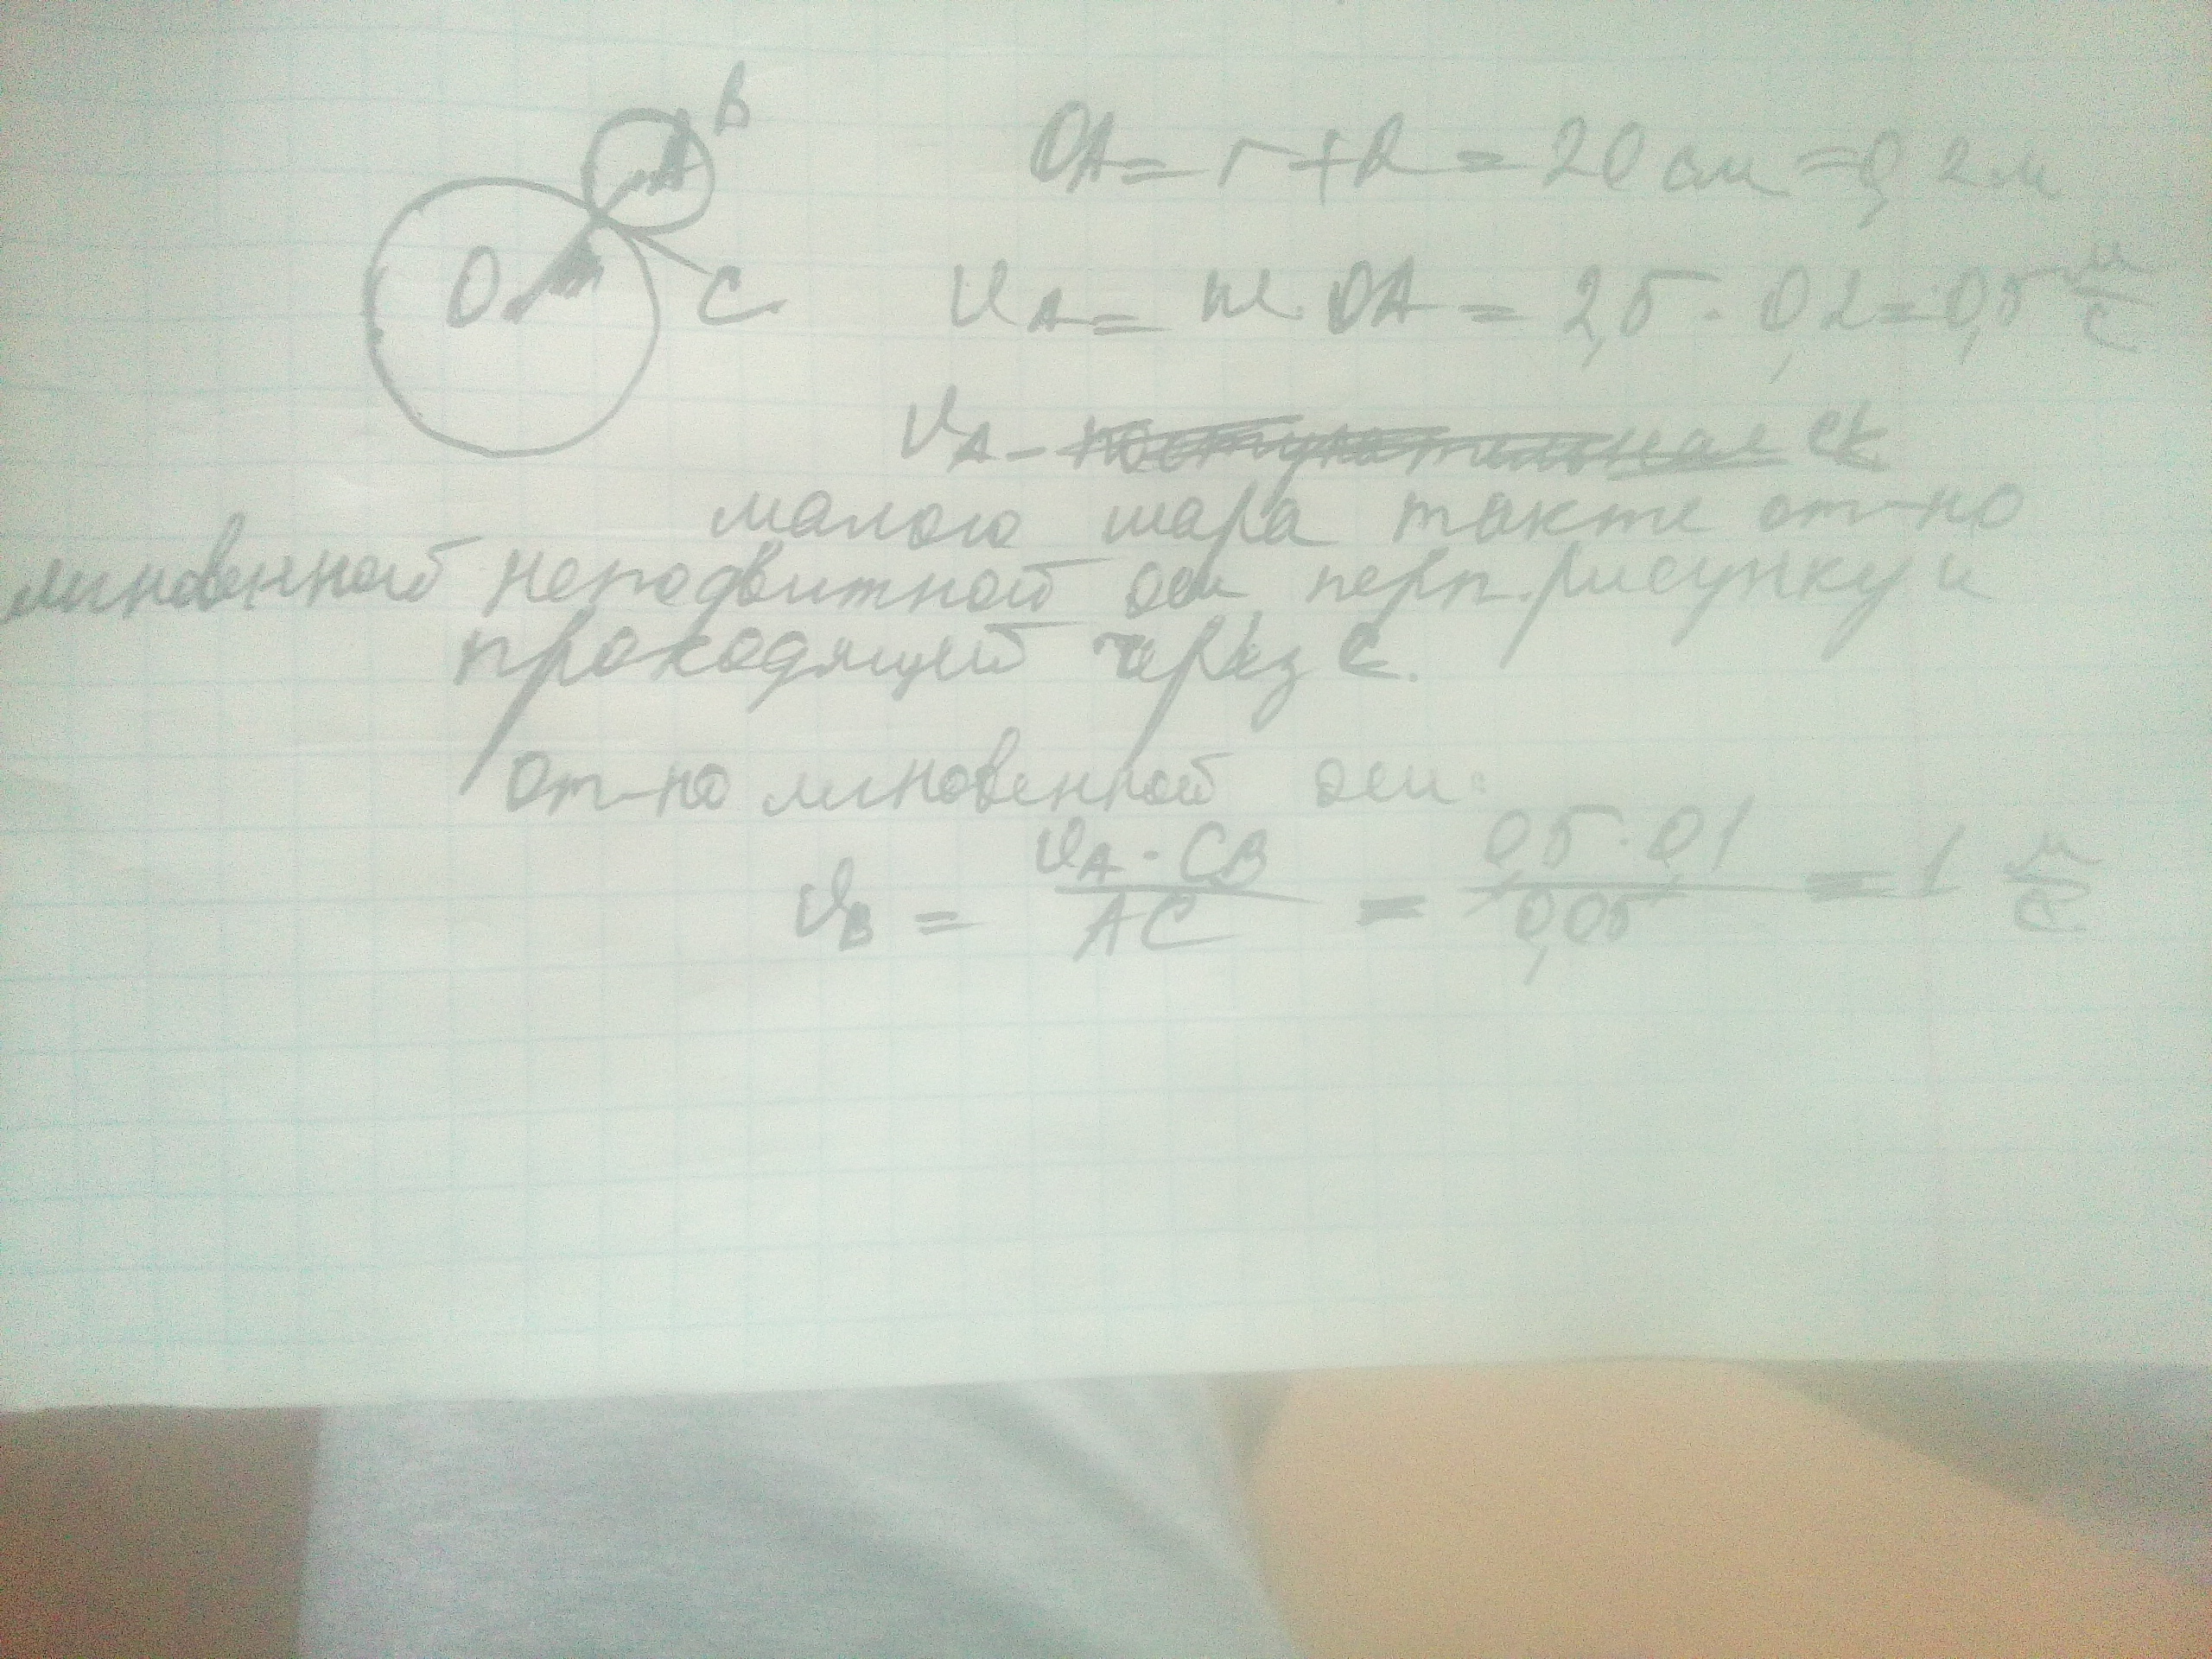 B
A
O
C
OA = r + R = 20 см = 0,2 м
υA = ω · OA = 2,5 · 0,2 = 0,5 м/с
υA - поступательная ск
малого шара также от-но
мгновенной неподвижной оси, перп. рисунку и
проходящей через C.
От-но мгновенной оси:
υB = υA · CB / AC = 0,5 · 0,1 / 0,05 = 1 м/с